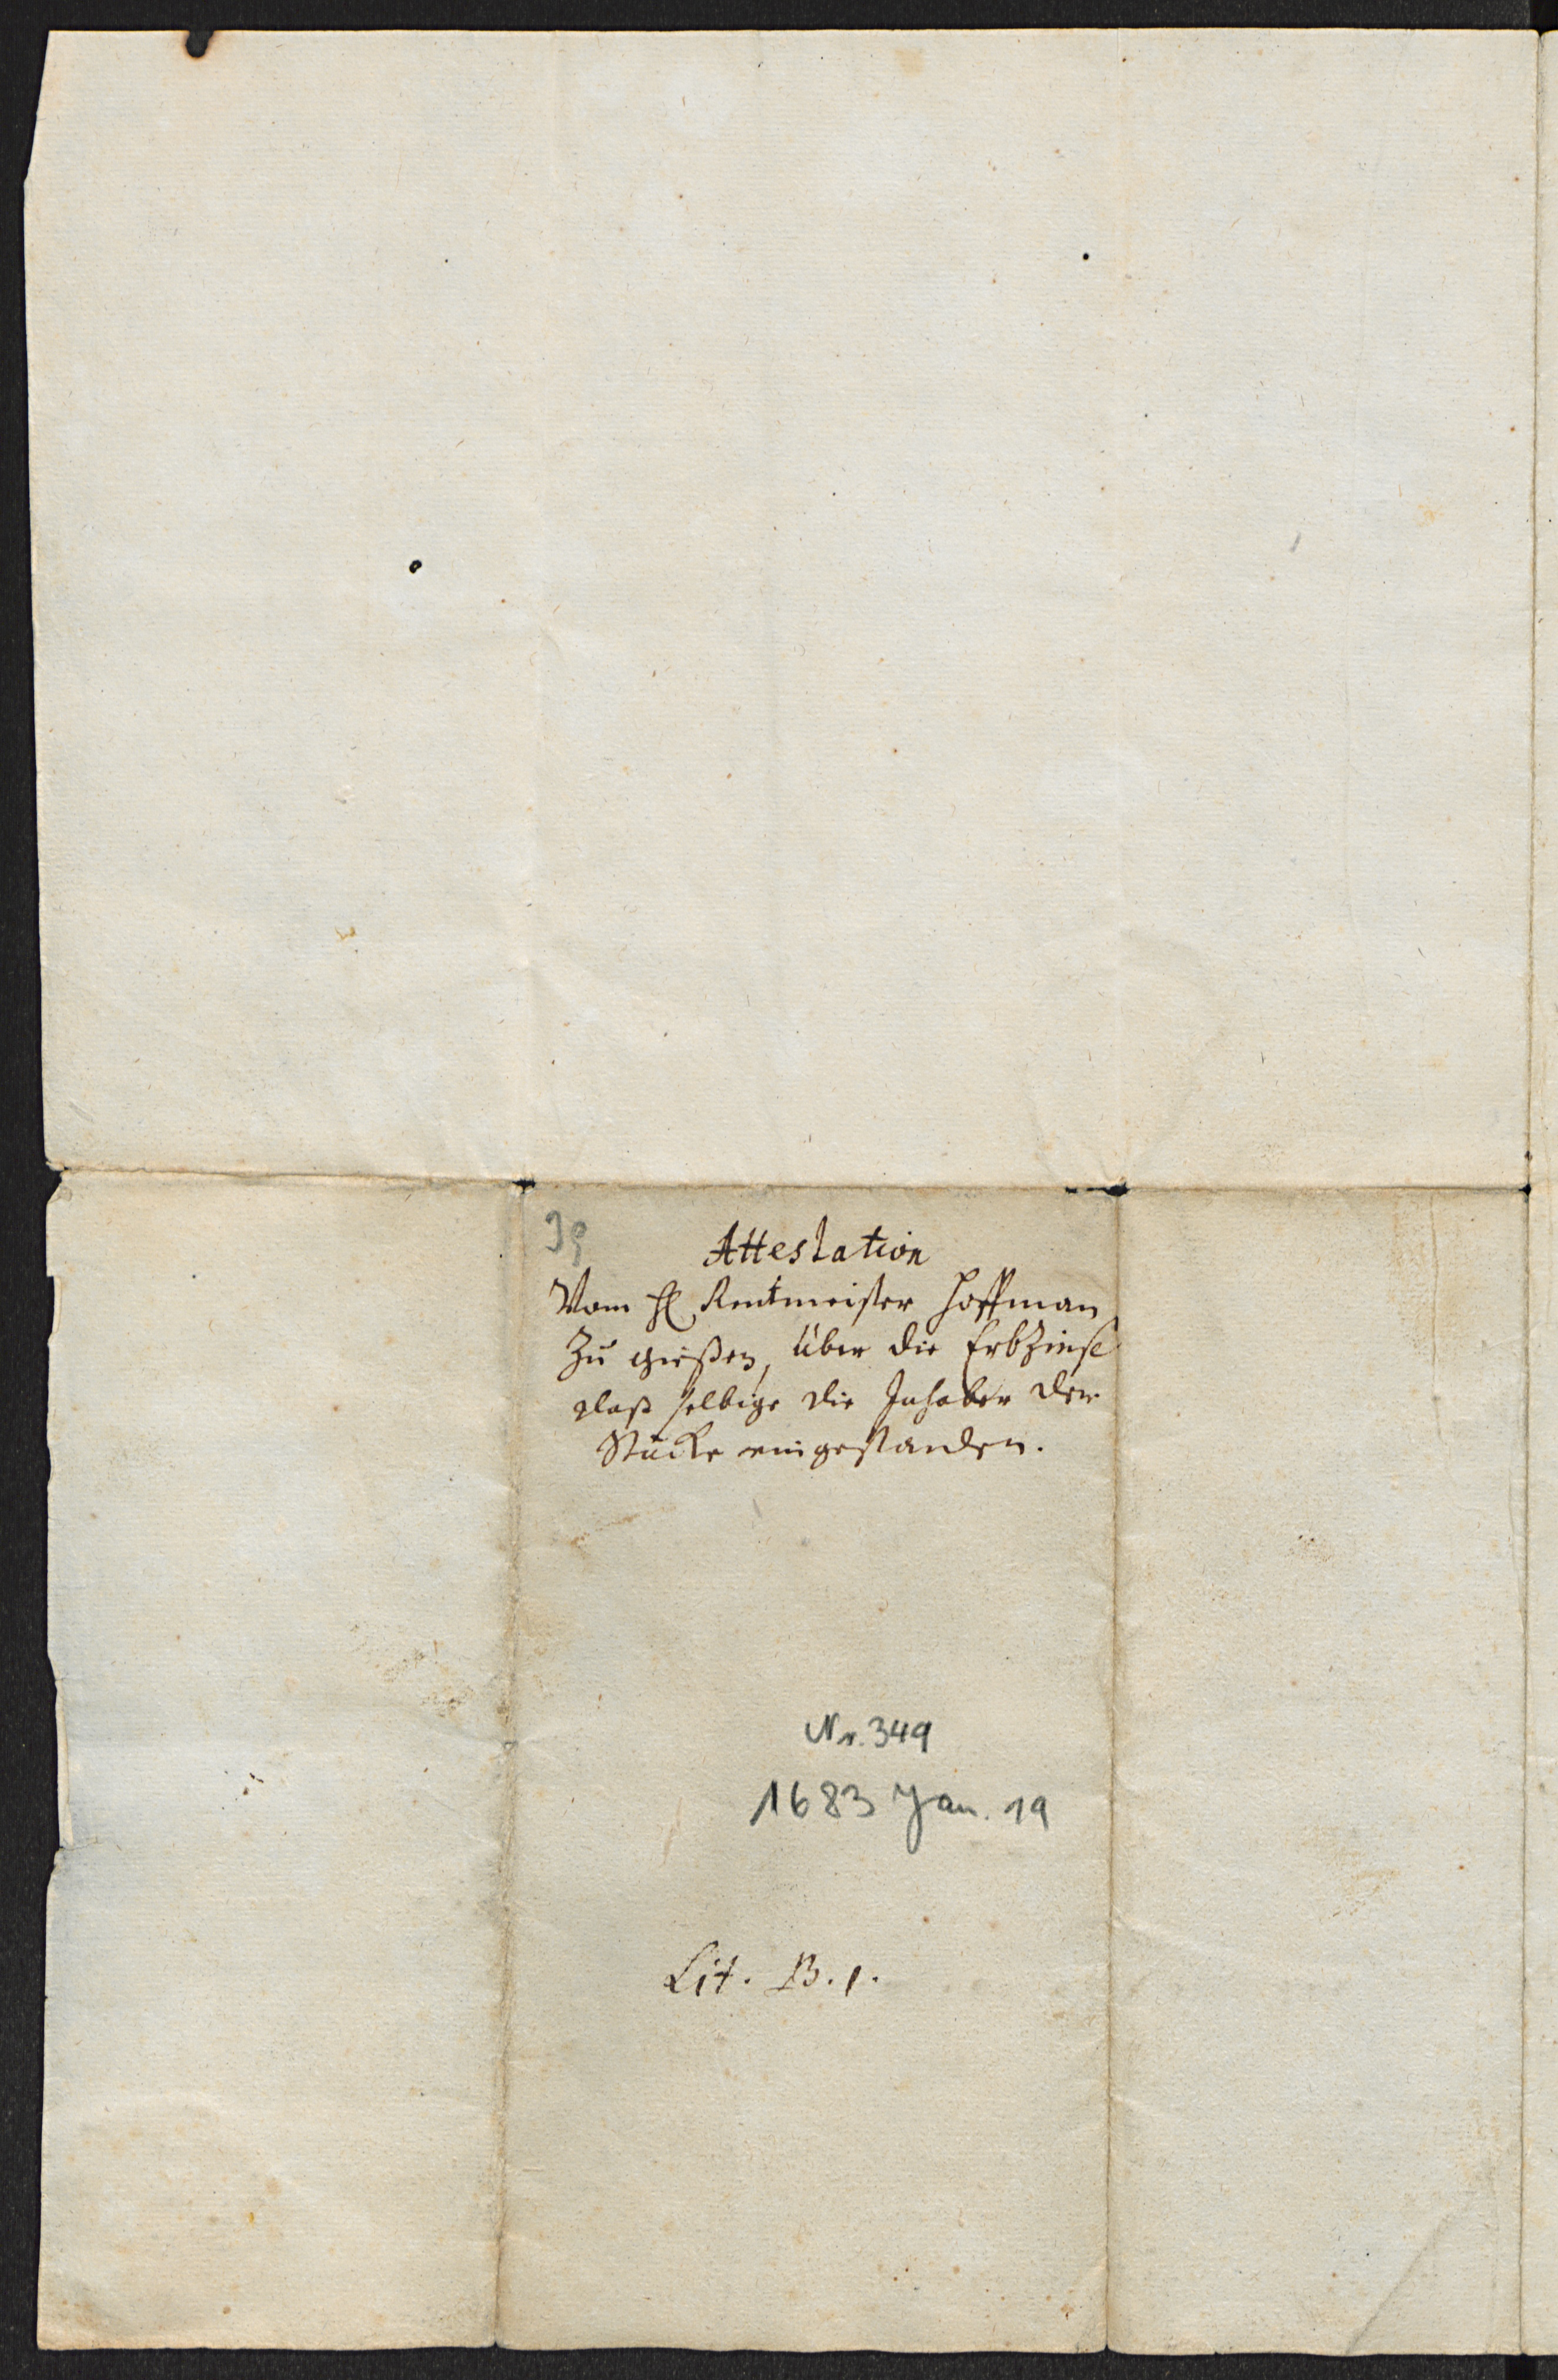 Attestation
Vom H. Rentmeister Hoffman
Zu Gießen, über die Erbzinse
daß selbige die Inhaber der
Stücke eingestanden.
Nr. 349
1683 Jan. 19
Lit. B. 1.